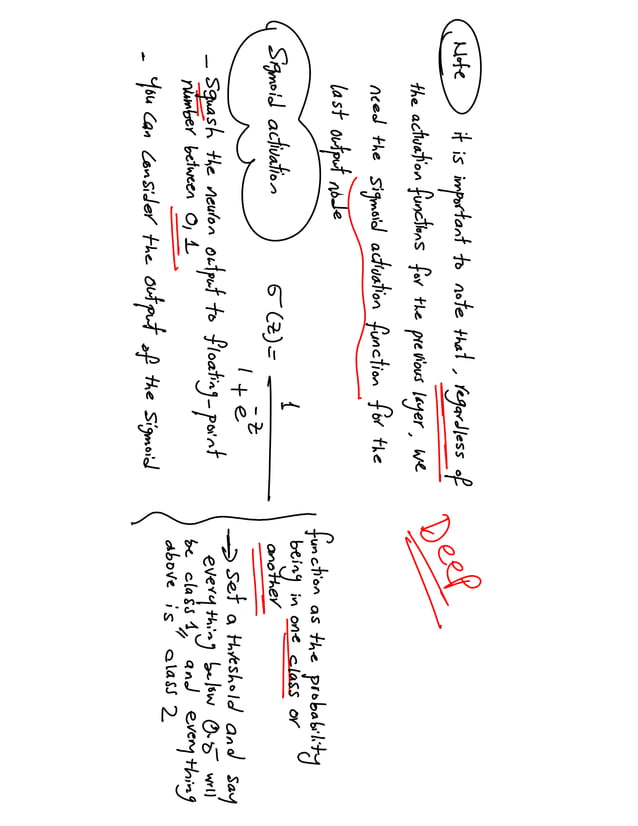 Note it is important to note that, regardless of
the activation functions for the previous layer, we
need the sigmoid activation function for the
last output node
Deep
Sigmoid activation
σ(z) = 1 / 1 + e^-z
- Squash the neuron output to floating-point
number between 0,1
- You can consider the output of the sigmoid
function as the probability
being in one class or
another
→ Set a threshold and say
everything below 0.5 will
be class 1, and everything
above is class 2